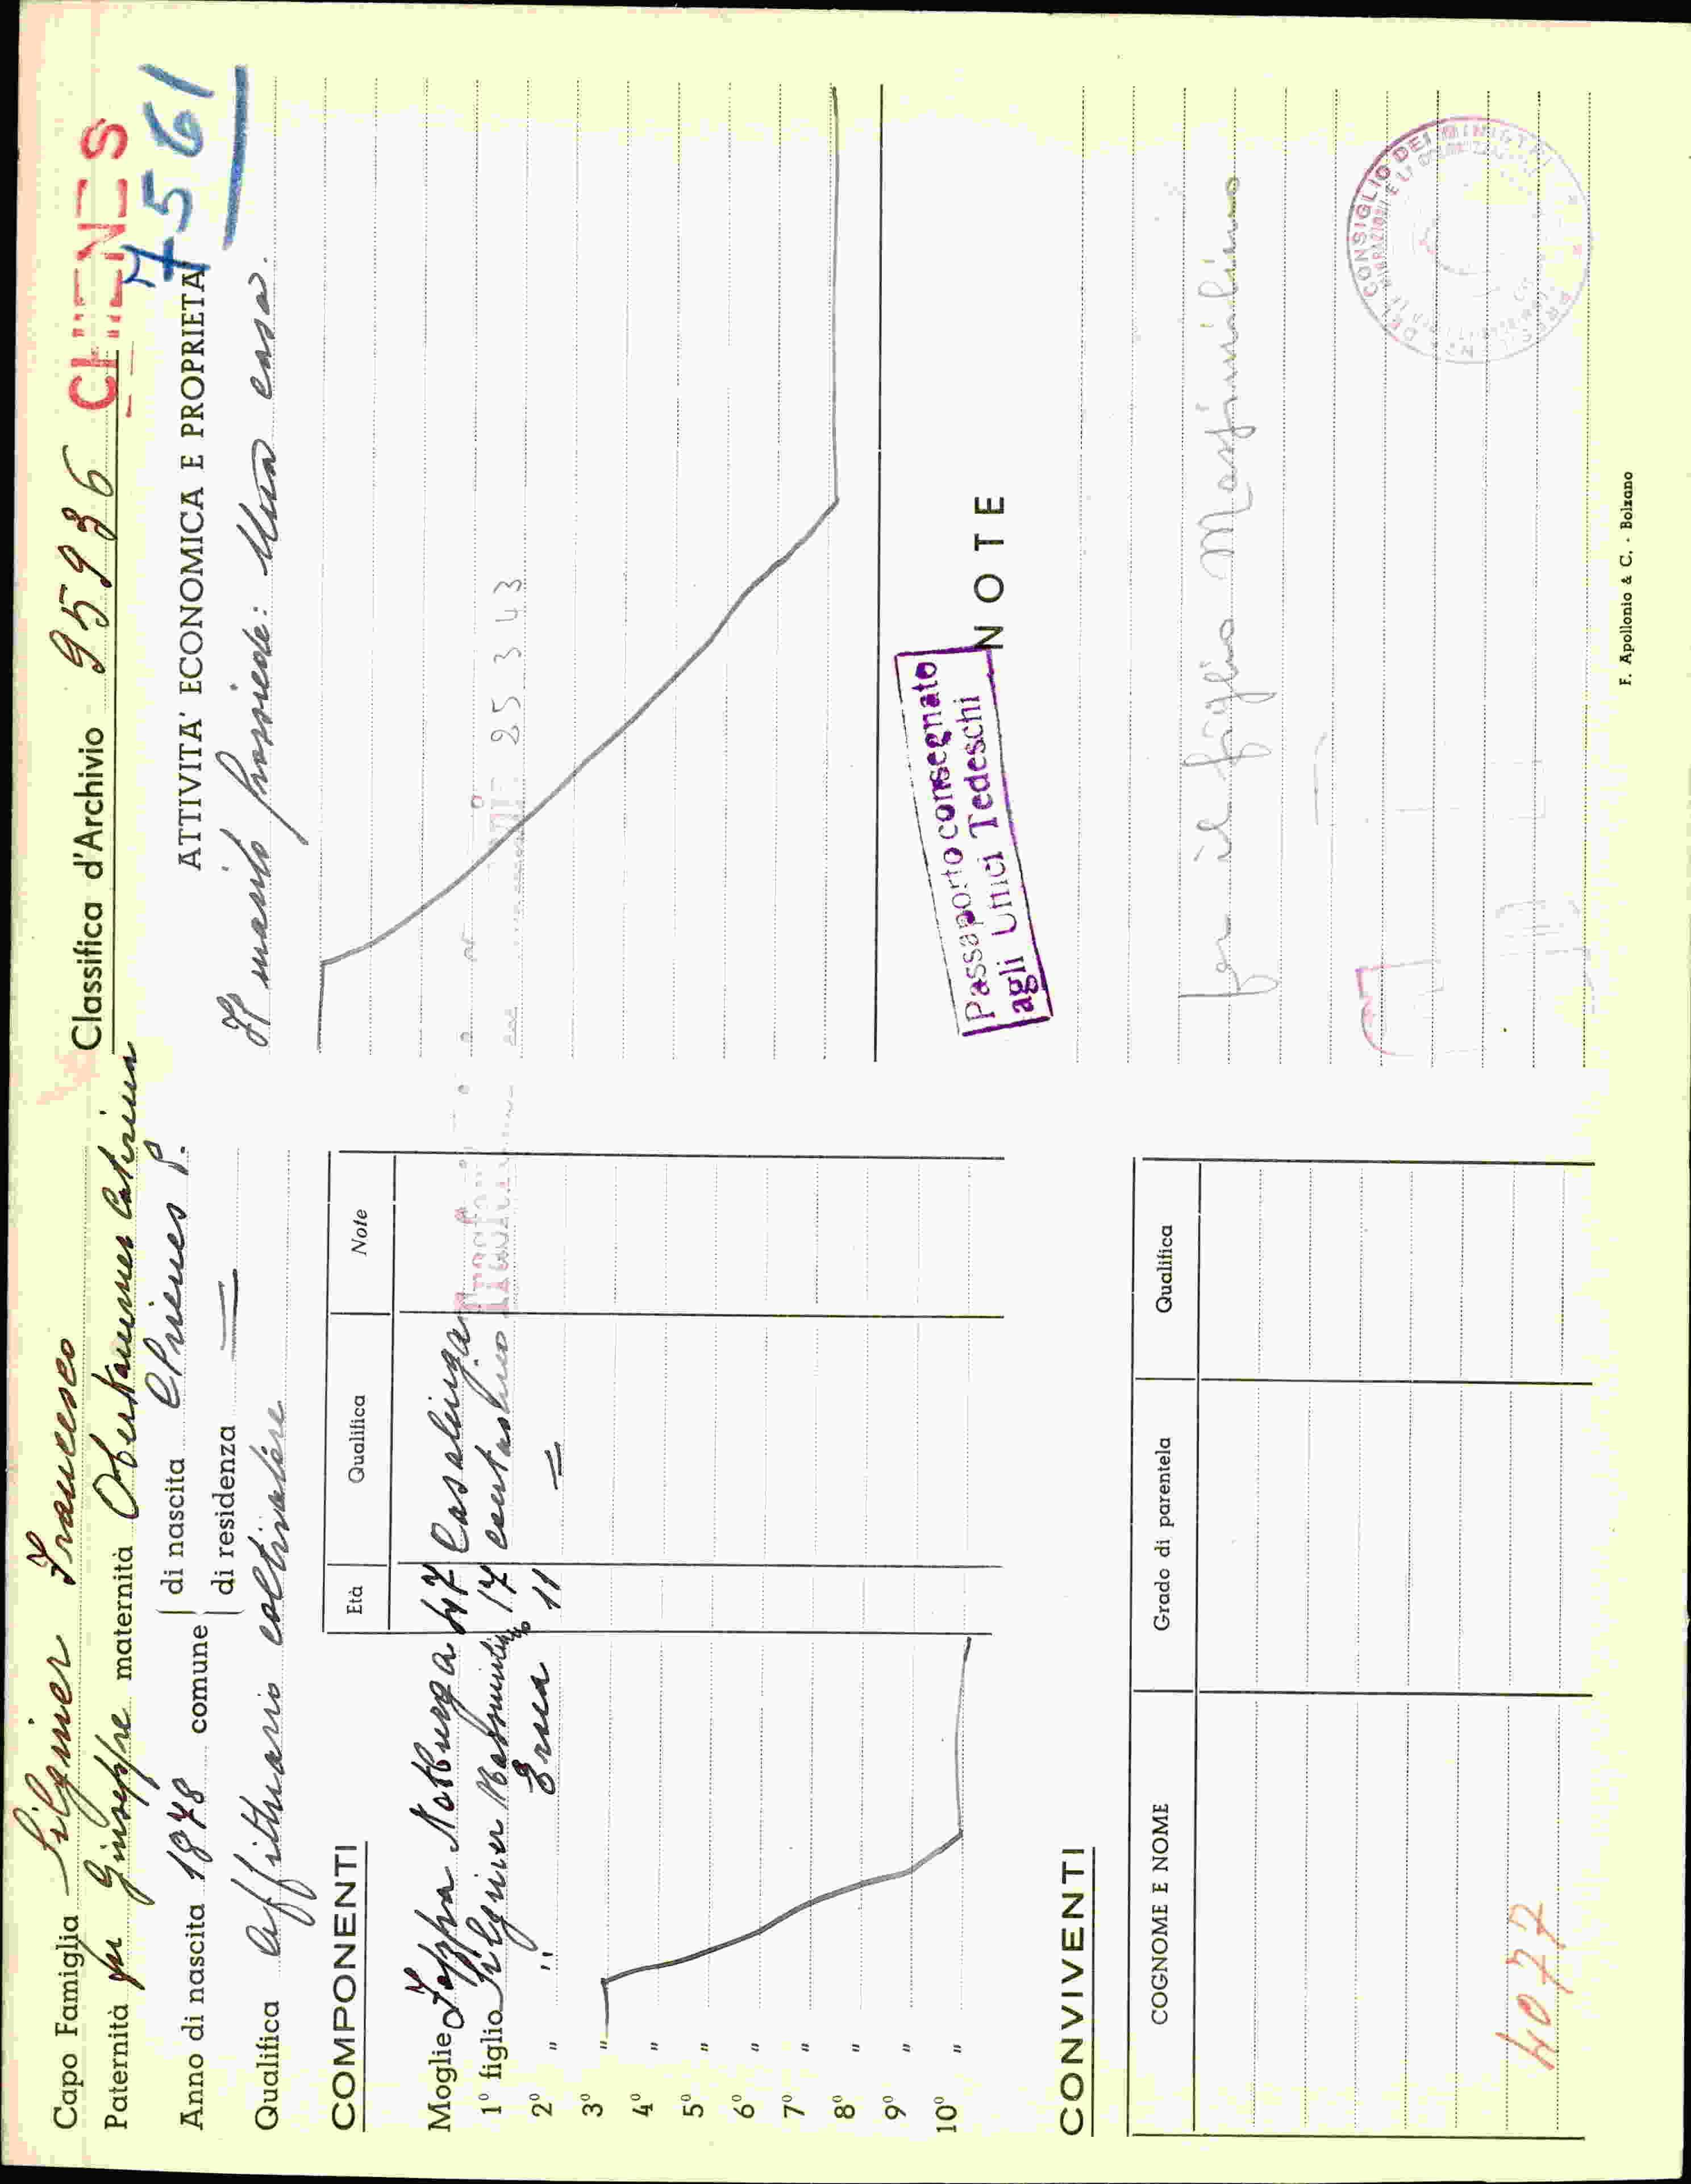 Capo Famiglia Silginer Francesco
Paternità fu Giuseppe maternità Oberkammer Caterina
Anno di nascita 1878 comune di nascita Chienes P.
di residenza =
Qualifica affittuario coltivatore
Classifica d'Archivio 95936 CHIENES
7561
ATTIVITA' ECONOMICA E PROPRIETA'
Il marito possiede: Una casa.
COMPONENTI
Età Qualifica Note
Moglie Notburga 47 Casalinga
1º figlio Silginer 17
2º " " Erna 11 =
3º "
4º "
5º "
6º "
7º "
8º "
9º "
10º "
25 3 43
Passaporto consegnato
agli Uffici Tedeschi
NOTE
per il figlio Massimiliano
CONSIGLIO DEI MINISTRI
CONVIVENTI
COGNOME E NOME Grado di parentela Qualifica
4077
F. Apollonio & C. - Bolzano